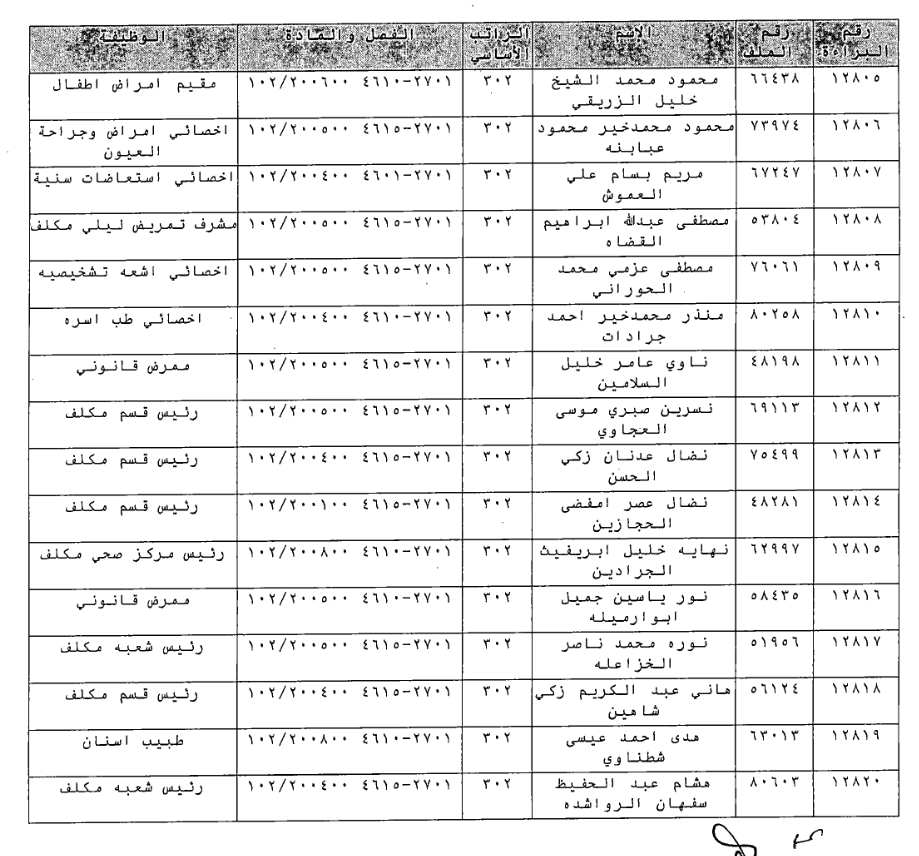 رقم البراءة | رقم الملف | الاسم | الراتب الأساسي | الفصل والمادة | الوظيفة
١٢٨٠٥ | ٦٦٤٣٨ | محمود محمد الشيخ خليل الزريقي | ٣٠٢ | ٢٧٠١-٤٦١٠ ١٠٢/٢٠٠٦٠٠ | مقيم امراض اطفال
١٢٨٠٦ | ٧٣٩٧٤ | محمود محمدخير محمود عبابنه | ٣٠٢ | ٢٧٠١-٤٦١٥ ١٠٢/٢٠٠٥٠٠ | اخصائي امراض وجراحة العيون
١٢٨٠٧ | ٦٧٢٤٧ | مريم بسام علي العموش | ٣٠٢ | ٢٧٠١-٤٦٠١ ١٠٢/٢٠٠٤٠٠ | اخصائي استعاضات سنية
١٢٨٠٨ | ٥٣٨٠٤ | مصطفى عبدالله ابراهيم القضاه | ٣٠٢ | ٢٧٠١-٤٦١٥ ١٠٢/٢٠٠٥٠٠ | مشرف تمريض ليلي مكلف
١٢٨٠٩ | ٧٦٠٦١ | مصطفى عزمي محمد الحوراني | ٣٠٢ | ٢٧٠١-٤٦١٥ ١٠٢/٢٠٠٥٠٠ | اخصائي اشعه تشخيصيه
١٢٨١٠ | ٨٠٢٥٨ | منذر محمدخير احمد جرادات | ٣٠٢ | ٢٧٠١-٤٦١٠ ١٠٢/٢٠٠٤٠٠ | اخصائي طب اسره
١٢٨١١ | ٤٨١٩٨ | ناوي عامر خليل السلامين | ٣٠٢ | ٢٧٠١-٤٦١٥ ١٠٢/٢٠٠٥٠٠ | ممرض قانوني
١٢٨١٢ | ٦٩١١٣ | نسرين صبري موسى العجاوي | ٣٠٢ | ٢٧٠١-٤٦١٥ ١٠٢/٢٠٠٥٠٠ | رئيس قسم مكلف
١٢٨١٣ | ٧٥٤٩٩ | نضال عدنان زكي الحسن | ٣٠٢ | ٢٧٠١-٤٦١٥ ١٠٢/٢٠٠٤٠٠ | رئيس قسم مكلف
١٢٨١٤ | ٤٨٢٨١ | نضال عصر امفضى الحجازين | ٣٠٢ | ٢٧٠١-٤٦١٥ ١٠٢/٢٠٠١٠٠ | رئيس قسم مكلف
١٢٨١٥ | ٦٢٩٩٧ | نهايه خليل ابريفيث الجرادين | ٣٠٢ | ٢٧٠١-٤٦١٠ ١٠٢/٢٠٠٨٠٠ | رئيس مركز صحي مكلف
١٢٨١٦ | ٥٨٤٣٥ | نور ياسين جميل ابوارميله | ٣٠٢ | ٢٧٠١-٤٦١٠ ١٠٢/٢٠٠٥٠٠ | ممرض قانوني
١٢٨١٧ | ٥١٩٥٦ | نوره محمد ناصر الخزاعله | ٣٠٢ | ٢٧٠١-٤٦١٥ ١٠٢/٢٠٠٥٠٠ | رئيس شعبه مكلف
١٢٨١٨ | ٥٦١٢٤ | هاني عبد الكريم زكي شاهين | ٣٠٢ | ٢٧٠١-٤٦١٥ ١٠٢/٢٠٠٤٠٠ | رئيس قسم مكلف
١٢٨١٩ | ٦٣٠١٣ | هدى احمد عيسى شطناوي | ٣٠٢ | ٢٧٠١-٤٦١٠ ١٠٢/٢٠٠٨٠٠ | طبيب اسنان
١٢٨٢٠ | ٨٠٦٠٣ | هشام عبد الحفيظ سفهان الرواشده | ٣٠٢ | ٢٧٠١-٤٦١٥ ١٠٢/٢٠٠٤٠٠ | رئيس شعبه مكلف